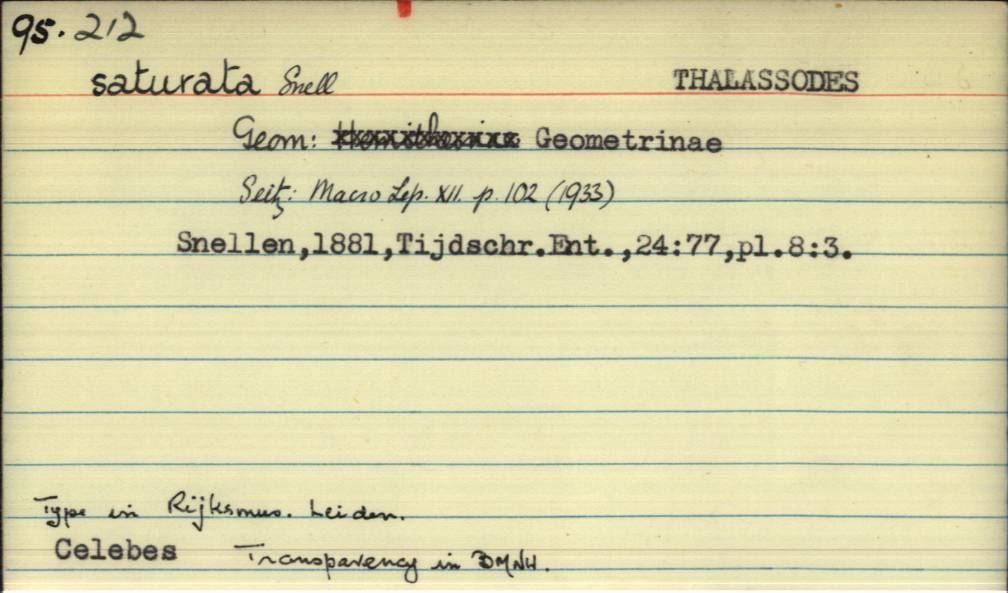 95.212
saturata Snell THALASSODES
Geom: Hemitheinae Geometrinae
Seitz: Macro Lep. XII. p. 102 (1933)
Snellen,1881,Tijdschr.Ent.,24:77,pl.8:3.
Type in Rijksmus. Leiden.
Celebes Transparency in BMNH.